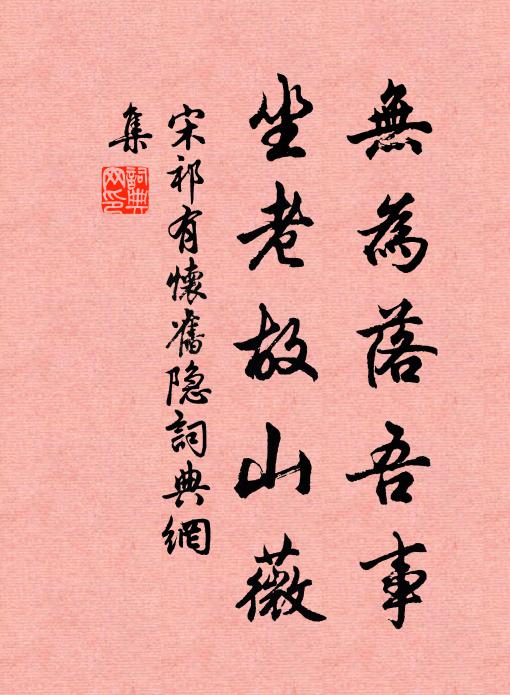 無為落吾事
坐老故山薇
宋祁有懷舊隐詞典網
集
詞典
网印